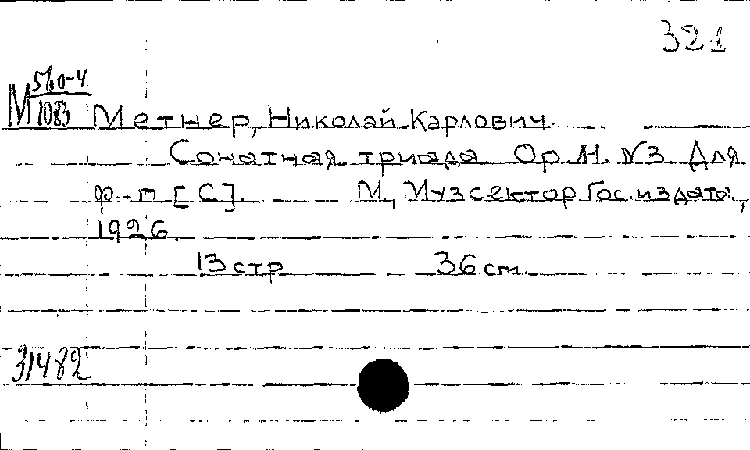 321
М 560-4
1083
Метнер, Николай Карлович.
Сонатная триада Ор. 11. N3 Для
ф-п [С]. М., Музсектор Гос. издата,
1926
13 стр 36 см.
31482